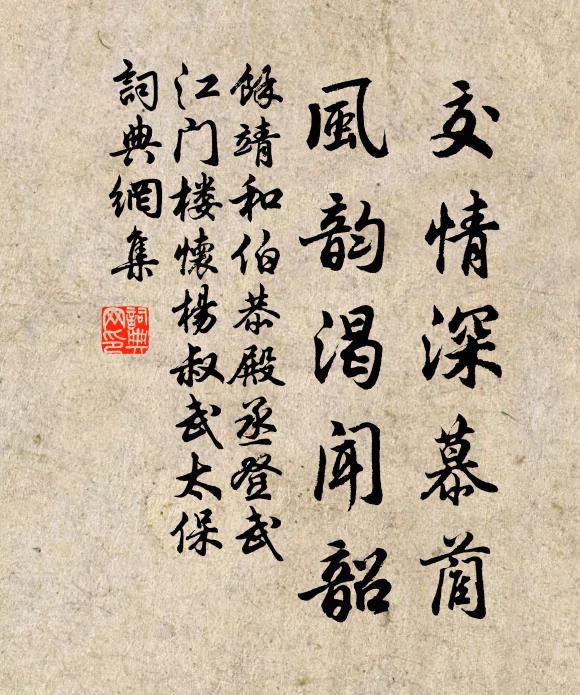 交情深慕蔺
風韵渴闻韶
餘靖和伯恭殿丞登武
江门楼懷楊叔武太保
詞典網集
詞典
网印